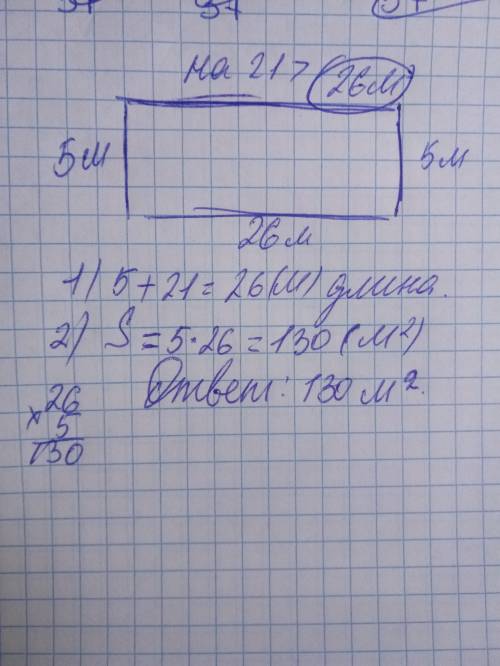 на 21> 26м
5м 5м
26м
1) 5+21=26(м) длина.
2) S=5·26=130(м²)
Ответ: 130м².
×26
5
130